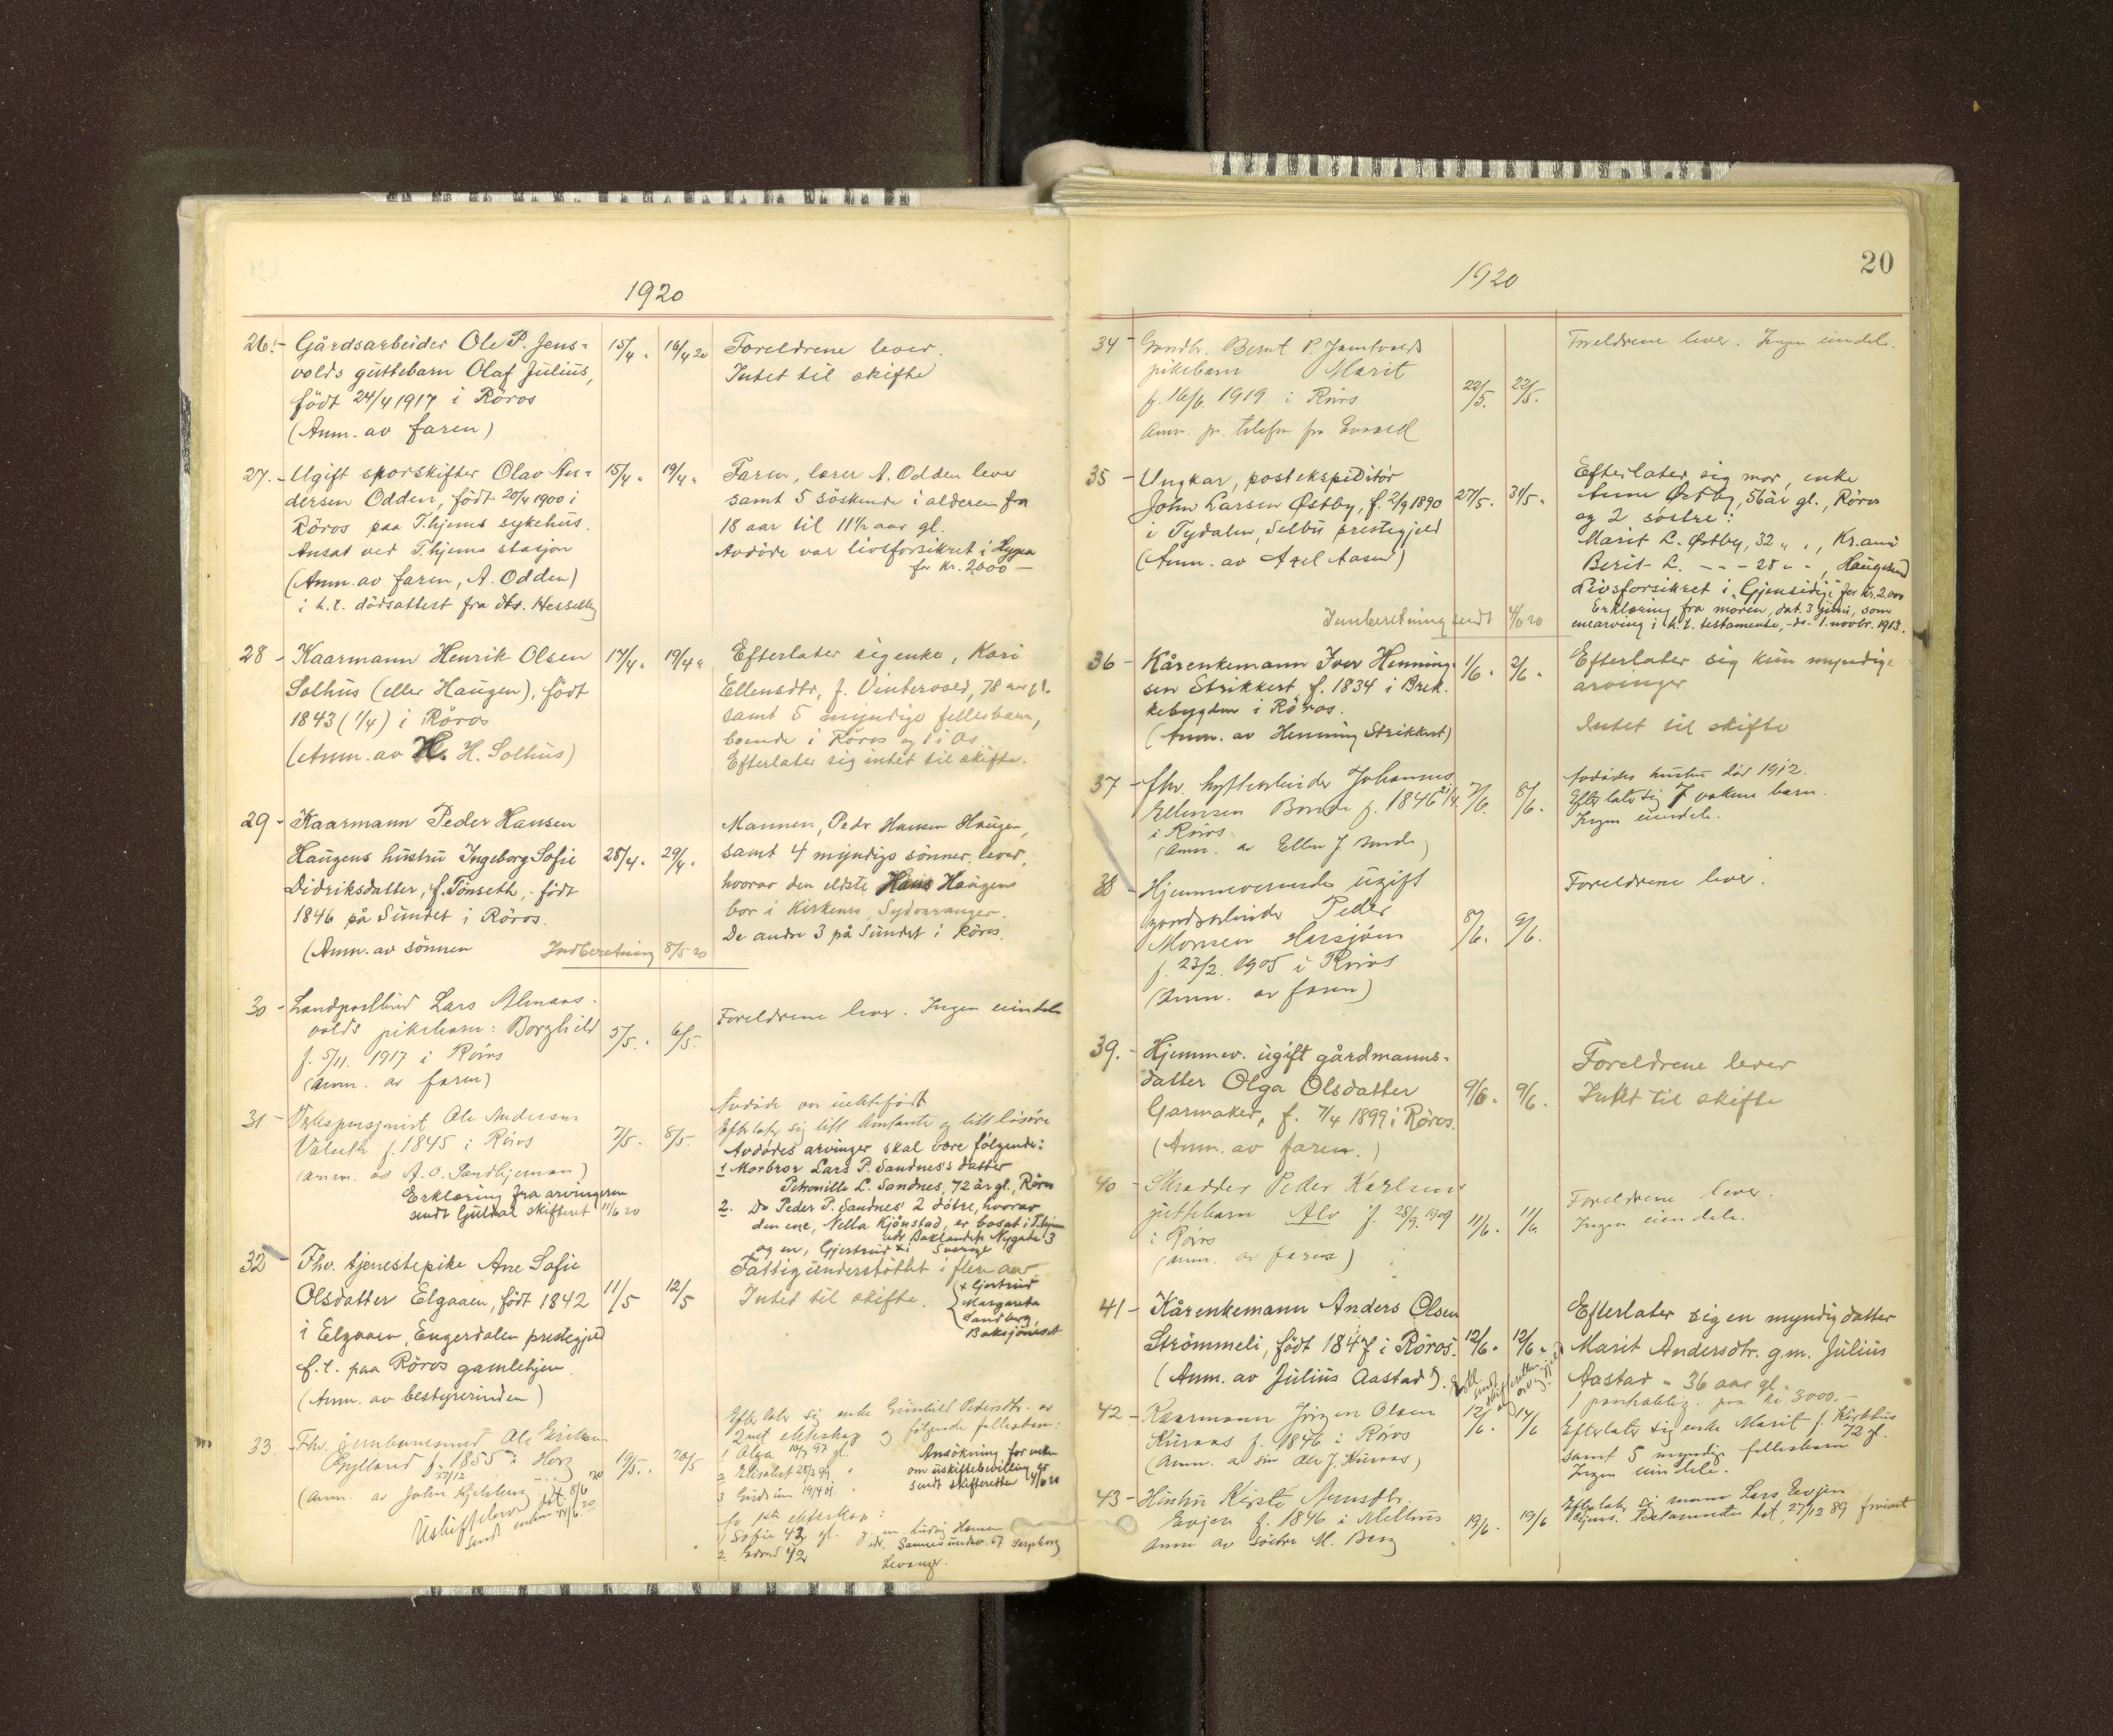 1920
26.- Gårdsarbeider Ole P. Jens=
volds guttebarn Olaf Julius,
født 24/4 1917 i Röros
(Anm. av faren)
15/4 "
16/4 20
Foreldrene lever.
Intet til skifte
27.- Ugift sporskifter Olav An=
dersen Odden, født 20/4 1900 i
Röros paa T.hjems sykehus.
Ansat ved T.hjems stasjon
(Anm. av faren, A. Odden)
i h.t. dödsattest fra drs. Hesselby
15/4 "
19/4 "
Faren, lærer A. Odden lever
samt 5 söskende i alderen fra
18 aar til 11½ aar gl.
Avdöde var livsforsikret i Hygea
for kr. 2000 —
28 - Kaarmann Henrik Olsen
Solhus (eller Haugen), født
1843 (1/4) i Röros
(Anm. av H. H. Solhus)
17/4 "
19/4 "
Efterlater sig enke, Kari
Ellensdtr, f. Vintervold, 78 aar gl.
samt 5 myndige fellesbarn,
boende i Röros og 1 i Os
Efterlater sig intet til skifte.
29 - Kaarmann Peder Hansen
Haugens hustru Ingeborg Sofie
Didriksdatter, f. Tönseth, født
1846 på Sundet i Röros.
(Anm. av sönnen
Indberetning 8/5 20
28/4 "
29/4 "
Mannen, Peder Hansen Haugen,
samt 4 myndige sönner lever,
hvorav den eldste Hans Haugen
bor i Kirkenes, Sydvaranger.
De andre 3 på Sundet i Röros.
30 - Landpostbud Lars Almaas-
volds pikebarn: Borghild
f. 5/11. 1917 i Röros
(anm. av faren)
5/5. "
6/5.
Foreldrene lever. Ingen eiendele
31 - Ole Andersen
f. 1845 i Röros
(anm. av A. O. Sandhjeman)
Erklæring fra arvingerne
sendt Guldal skifteret 11/6 20
7/5.
8/5.
Avdöde var uektefødt
Efterlater sig litt kontante og litt lösöre
Avdödes arvinger skal være følgende:
1 Morbror Lars P. Sandnes's datter
Petronille L. Sandnes, 72 år gl., Röros
2. Do Peder P. Sandnes' 2 dötre, hvorav
den ene, Nella Kjönstad, er bosat i T.hjem
adr. Baklandets Nygate 3
og en, Gjertrud x i Sverige
(x Gjertrud
Margareta
Sandberg,
Baksjönäset
32 - Fhv. tjenestepike Ane Sofie
Olsdatter Elgaaen, født 1842
i Elgaaen, Engerdalen prestegjeld
f.t. paa Röros gamlehjem
(Anm. av bestyrerinden)
11/5
12/5
Fattigunderstöttet i flere aar
Intet til skifte.
33. - Fhv. jernbanesmed Ole Eriksen
f. 1855 i
27/12
(anm. av John
Uskiftebev. dat. 8/6 20
sendt enken
19/5. "
20/5
Efterlater sig enke Gunhild Pedersdtr. av
2net ekteskap og følgende fellesbarn:
1 Olga 10/7 97 gl.
2 Elisabet 28/3 99 "
3
Ansökning for enken
om uskiftebevilling er
sendt skifteretten 4/6 20
fo 1ste ekteskap:
1) Sofie 43 gl. g. m. Ludvig Hansen
adr. Sannesundsv. 67 Sarpsborg
2 42
Levanger.
20
1920
34 - Gaardbr. Bernt P. Jamtvolds
pikebarn Marit
f. 16/6. 1919 i Röros
Anm. pr. telefon fra
22/5.
22/5.
Foreldrene lever. Ingen eiendele.
35 - Ungkar, postekspeditör
John Larsen Østby, f. 2/9 1890
i Tydalen, Selbu prestegjeld
(Anm. av Axel Aasen)
Innberetning sendt 4/6 20
27/5.
31/5 "
Efterlater sig mor, enke
Anne Østby, 56 år gl., Röros
og 2 söstre:
Marit L. Østby, 32 " ", Kr.ania
Berit L. - - - 28 " - , Haugesund
Livsforsikret i "Gjensidige" for kr. 2.000
Erklæring fra moren, dat. 3 juni, som
enearving i h.t. testamente, do. 1. novbr. 1913.
36 - Kårenkemann Iver Henning-
sen Strikkert, f. 1834 i Brek-
kebygden i Röros.
(Anm. av Henning Strikkert)
1/6 "
2/6 "
Efterlater sig kun myndige
arvinger
Intet til skifte
37 - fhv. hyttearbeider Johannes
Ellensen f. 1846 21/4
i Röros.
(anm. av Ellen J
7/6.
8/6.
Avdödes hustru död 1912.
Efterlater sig 7 voksne barn.
Ingen eiendele.
38 - Hjemmeværende ugift
gaardsarbeider Peder
Monsen Harsjöen
f. 23/2. 1905 i Röros
(Anm. av faren)
8/6.
9/6.
Foreldrene lever.
39. - Hjemmev. ugift gårdmanns-
datter Olga Olsdatter
Garmaker, f. 7/4 1899 i Röros.
(Anm. av faren.)
9/6 "
9/6 "
Foreldrene lever
Intet til skifte
40 - Skradder Peder Karlsens
guttebarn Alv f. 28/9. 1909
i Röros
(anm. av faren)
11/6.
11/6.
Foreldrene lever.
Ingen eiendele.
41 - Kårenkemann Anders Olsen
Strömmeli, født 1847 i Röros.
(Anm. av Julius Aastad).
12/6 "
12/6 "
Efterlater sig en myndig datter
Marit Andersdtr. g.m. Julius
Aastad - 36 aar gl.
1 pantobblig. paa kr. 3000.-
42 - Kaarmann Jörgen Olsen
Kuraas f. 1846 i Röros
(Anm. av sön Ole J. Kuraas)
12/6.
14/6
Efterlater sig enke Marit f. Kirkhus
72 gl.
samt 5 myndige fellesbarn
Ingen eiendele.
43 - Hustru Kirsti
Evjen f. 1846 i Melhus
anm av söster M. Berg
19/6.
19/6
Efterlater sig mann Lars Evjen
Testamente dat. 27/12 89